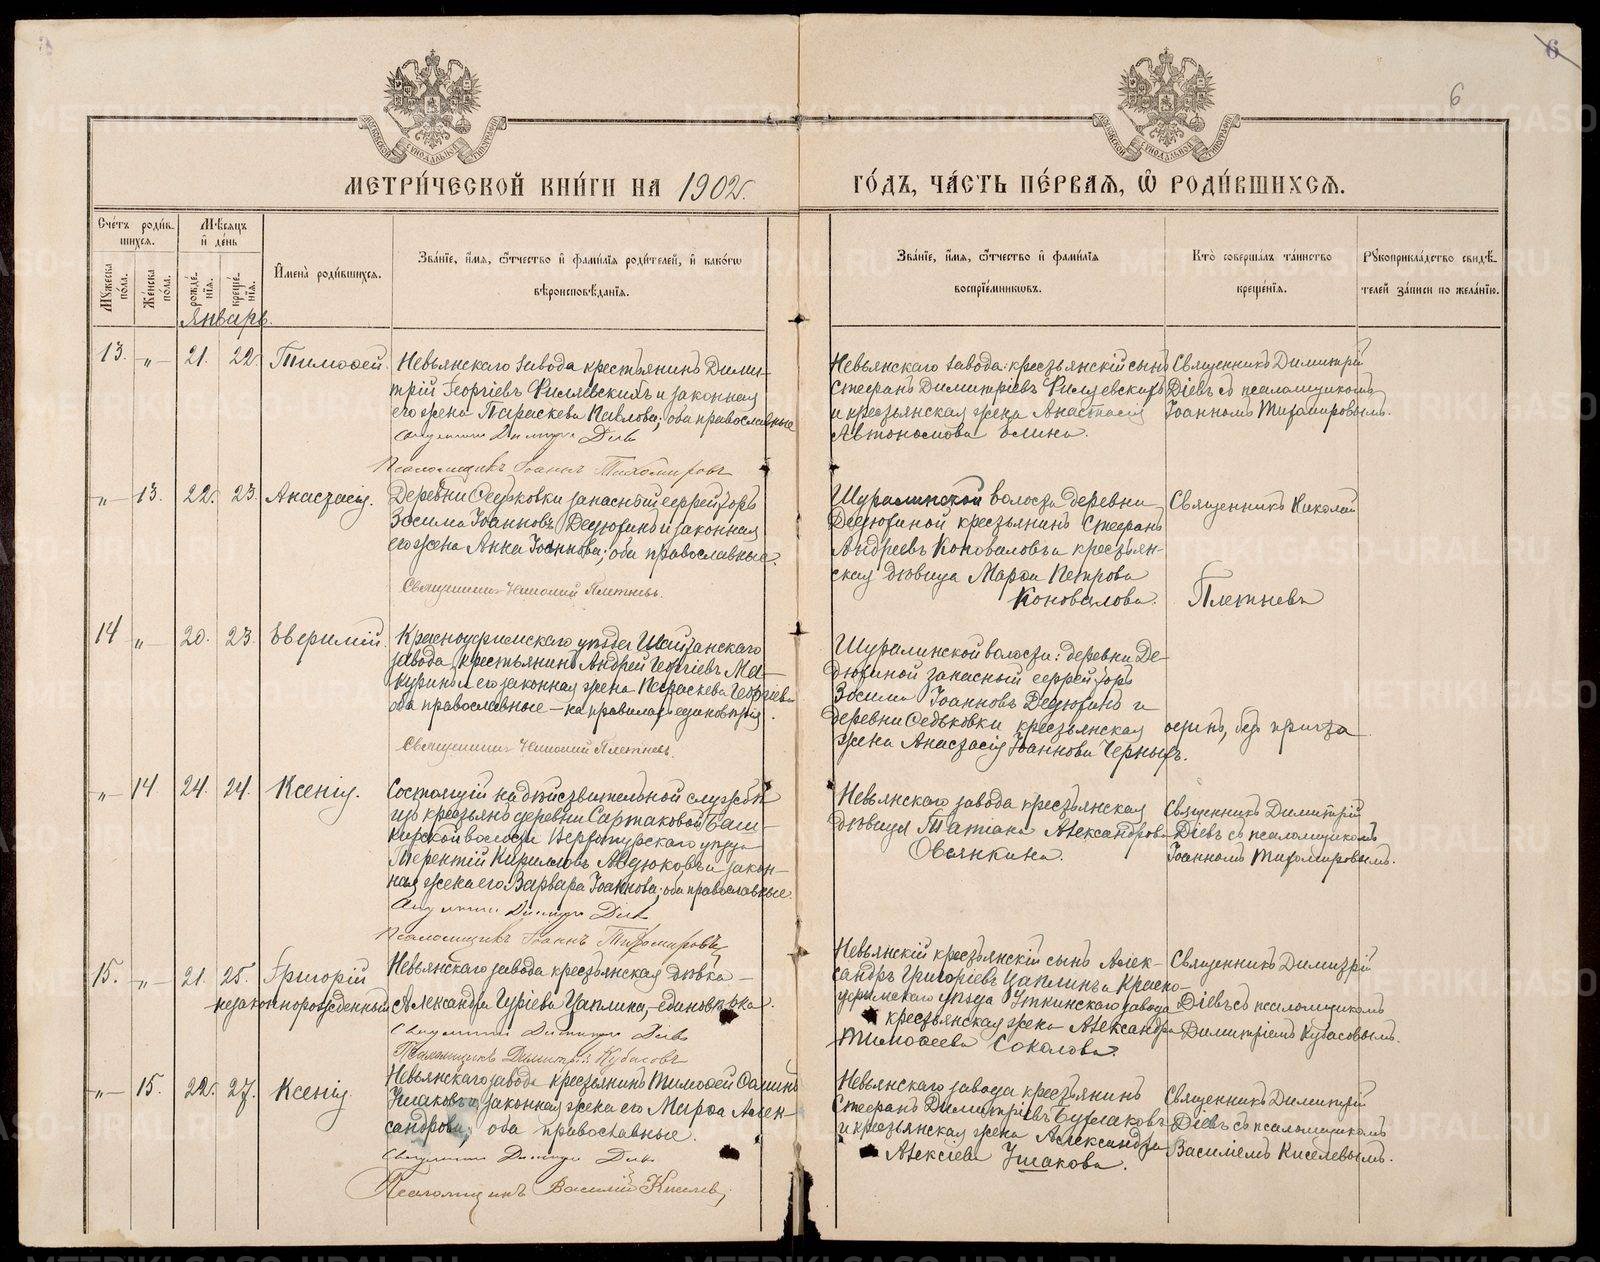 6
6
МОСКОВСКОЙ СѴНОДАЛЬНОЙ ТИПОГРАФІИ
МОСКОВСКОЙ СѴНОДАЛЬНОЙ ТИПОГРАФІИ
МЕТРИ́ЧЕСКОЙ КНИ́ГИ НА 1902 г.
ГО́ДЪ, ЧА́СТЬ ПЕ́РВАѦ, Ѽ РОДИ́ВШИХСѦ.
Сче́тъ роди́в-
шихсѧ.
Мꙋ́жеска по́ла.
Же́нска по́ла.
Мѣ́сѧцъ
и҆ де́нь
рожде́-
нїѧ.
креще́-
нїѧ.
И҆мена̀ роди́вшихсѧ.
Зва́нїе, и҆́мѧ, ѻ҆́тчество и҆ фами́лїѧ роди́телей, и҆ како́гѡ
вѣроисповѣ́данїѧ.
Зва́нїе, и҆́мѧ, ѻ҆́тчество и҆ фами́лїѧ
воспрїе́мникѡвъ.
Кто̀ соверша́лъ та́инство
креще́нїѧ.
Рꙋкоприкла́дство свидѣ́-
телей за́писи по жела́нїю.
Январь.
13. „ 21. 22. Тимоѳей.
Невьянскаго завода крестьянинъ Дими-
трій Георгіевъ и законная
его жена Параскева Павлова, оба православные
Священникъ Димитрій Діевъ
Псаломщикъ Іоаннъ Тихомировъ
Невьянскаго завода: крестьянскій сынъ
Стефанъ Димитріевъ
и крестьянская жена Анастасія
Автономова
Священникъ Димитрій
Діевъ съ псаломщикомъ
Іоанномъ Тихомировымъ.
„ 13. 22. 23. Анастасія.
Деревни Федьковки запасный ефрейторъ
Зосима Іоанновъ Дедюхинъ и законная
его жена Анна Іоаннова; оба православные.
Священникъ Николай Плетневъ.
Шуралинской волости деревни
Дедюхиной крестьянинъ Стефанъ
Андреевъ Коноваловъ и крестьян-
ская дѣвица Марѳа Петрова
Коновалова.
Священникъ Николай
Плетневъ
14 „ 20. 23. Евѳимій.
Красноуфимскаго уѣзда Шайтанскаго
завода крестьянинъ Андрей Георгіевъ Ма-
куринъ и его законная жена Параскева Георгіева
оба православные – на правилахъ единовѣрія.
Священникъ Николай Плетневъ.
Шуралинской волости: деревни Де-
дюхиной запасный ефрейторъ
Зосима Іоанновъ Дедюхинъ и
деревни Федьковки крестьянская
жена Анастасія Іоаннова Черныхъ.
одинъ, безъ причта
„ 14 24. 24. Ксенія.
Состоящій на дѣйствительной службѣ
изъ крестьянъ деревни Сартаковой Баш-
карской волости Верхотурскаго уѣзда
Терентій Кирилловъ Авдюковъ и закон-
ная жена его Варвара Іоаннова; оба православные.
Священникъ Димитрій Діевъ
Псаломщикъ Іоаннъ Тихомировъ
Невьянскаго завода крестьянская
дѣвица Татіана Александрова
Овсянкина.
Священникъ Димитрій
Діевъ съ псаломщикомъ
Іоанномъ Тихомировымъ.
15. „ 21 25. Григорій
незаконнорожденный
Невьянскаго завода крестьянская дѣвка –
Александра Гуріева Цаплина, единовѣрка.
Священникъ Димитрій Діевъ
Псаломщикъ Димитрій Кубасовъ
Невьянскій крестьянскій сынъ Алек-
сандръ Григоріевъ Цаплинъ и Красно-
уфимскаго уѣзда Уткинскаго завода
крестьянская жена Александра
Тимоѳеева Соколова.
Священникъ Димитрій
Діевъ съ псаломщикомъ
Димитріемъ Кубасовымъ.
„ 15. 22. 27. Ксенія.
Невьянскаго завода крестьянинъ Тимоѳей Ѳоминъ
Ушаковъ и законная жена его Марѳа Алек-
сандрова; оба православные.
Священникъ Димитрій Діевъ
Псаломщикъ Василій Киселевъ
Невьянскаго завода крестьянинъ
Стефанъ Димитріевъ
и крестьянская жена Александра
Алексіева Ушакова.
Священникъ Димитрій
Діевъ съ псаломщикомъ
Василіемъ Киселевымъ.
METRIKI.GASO-URAL.RU